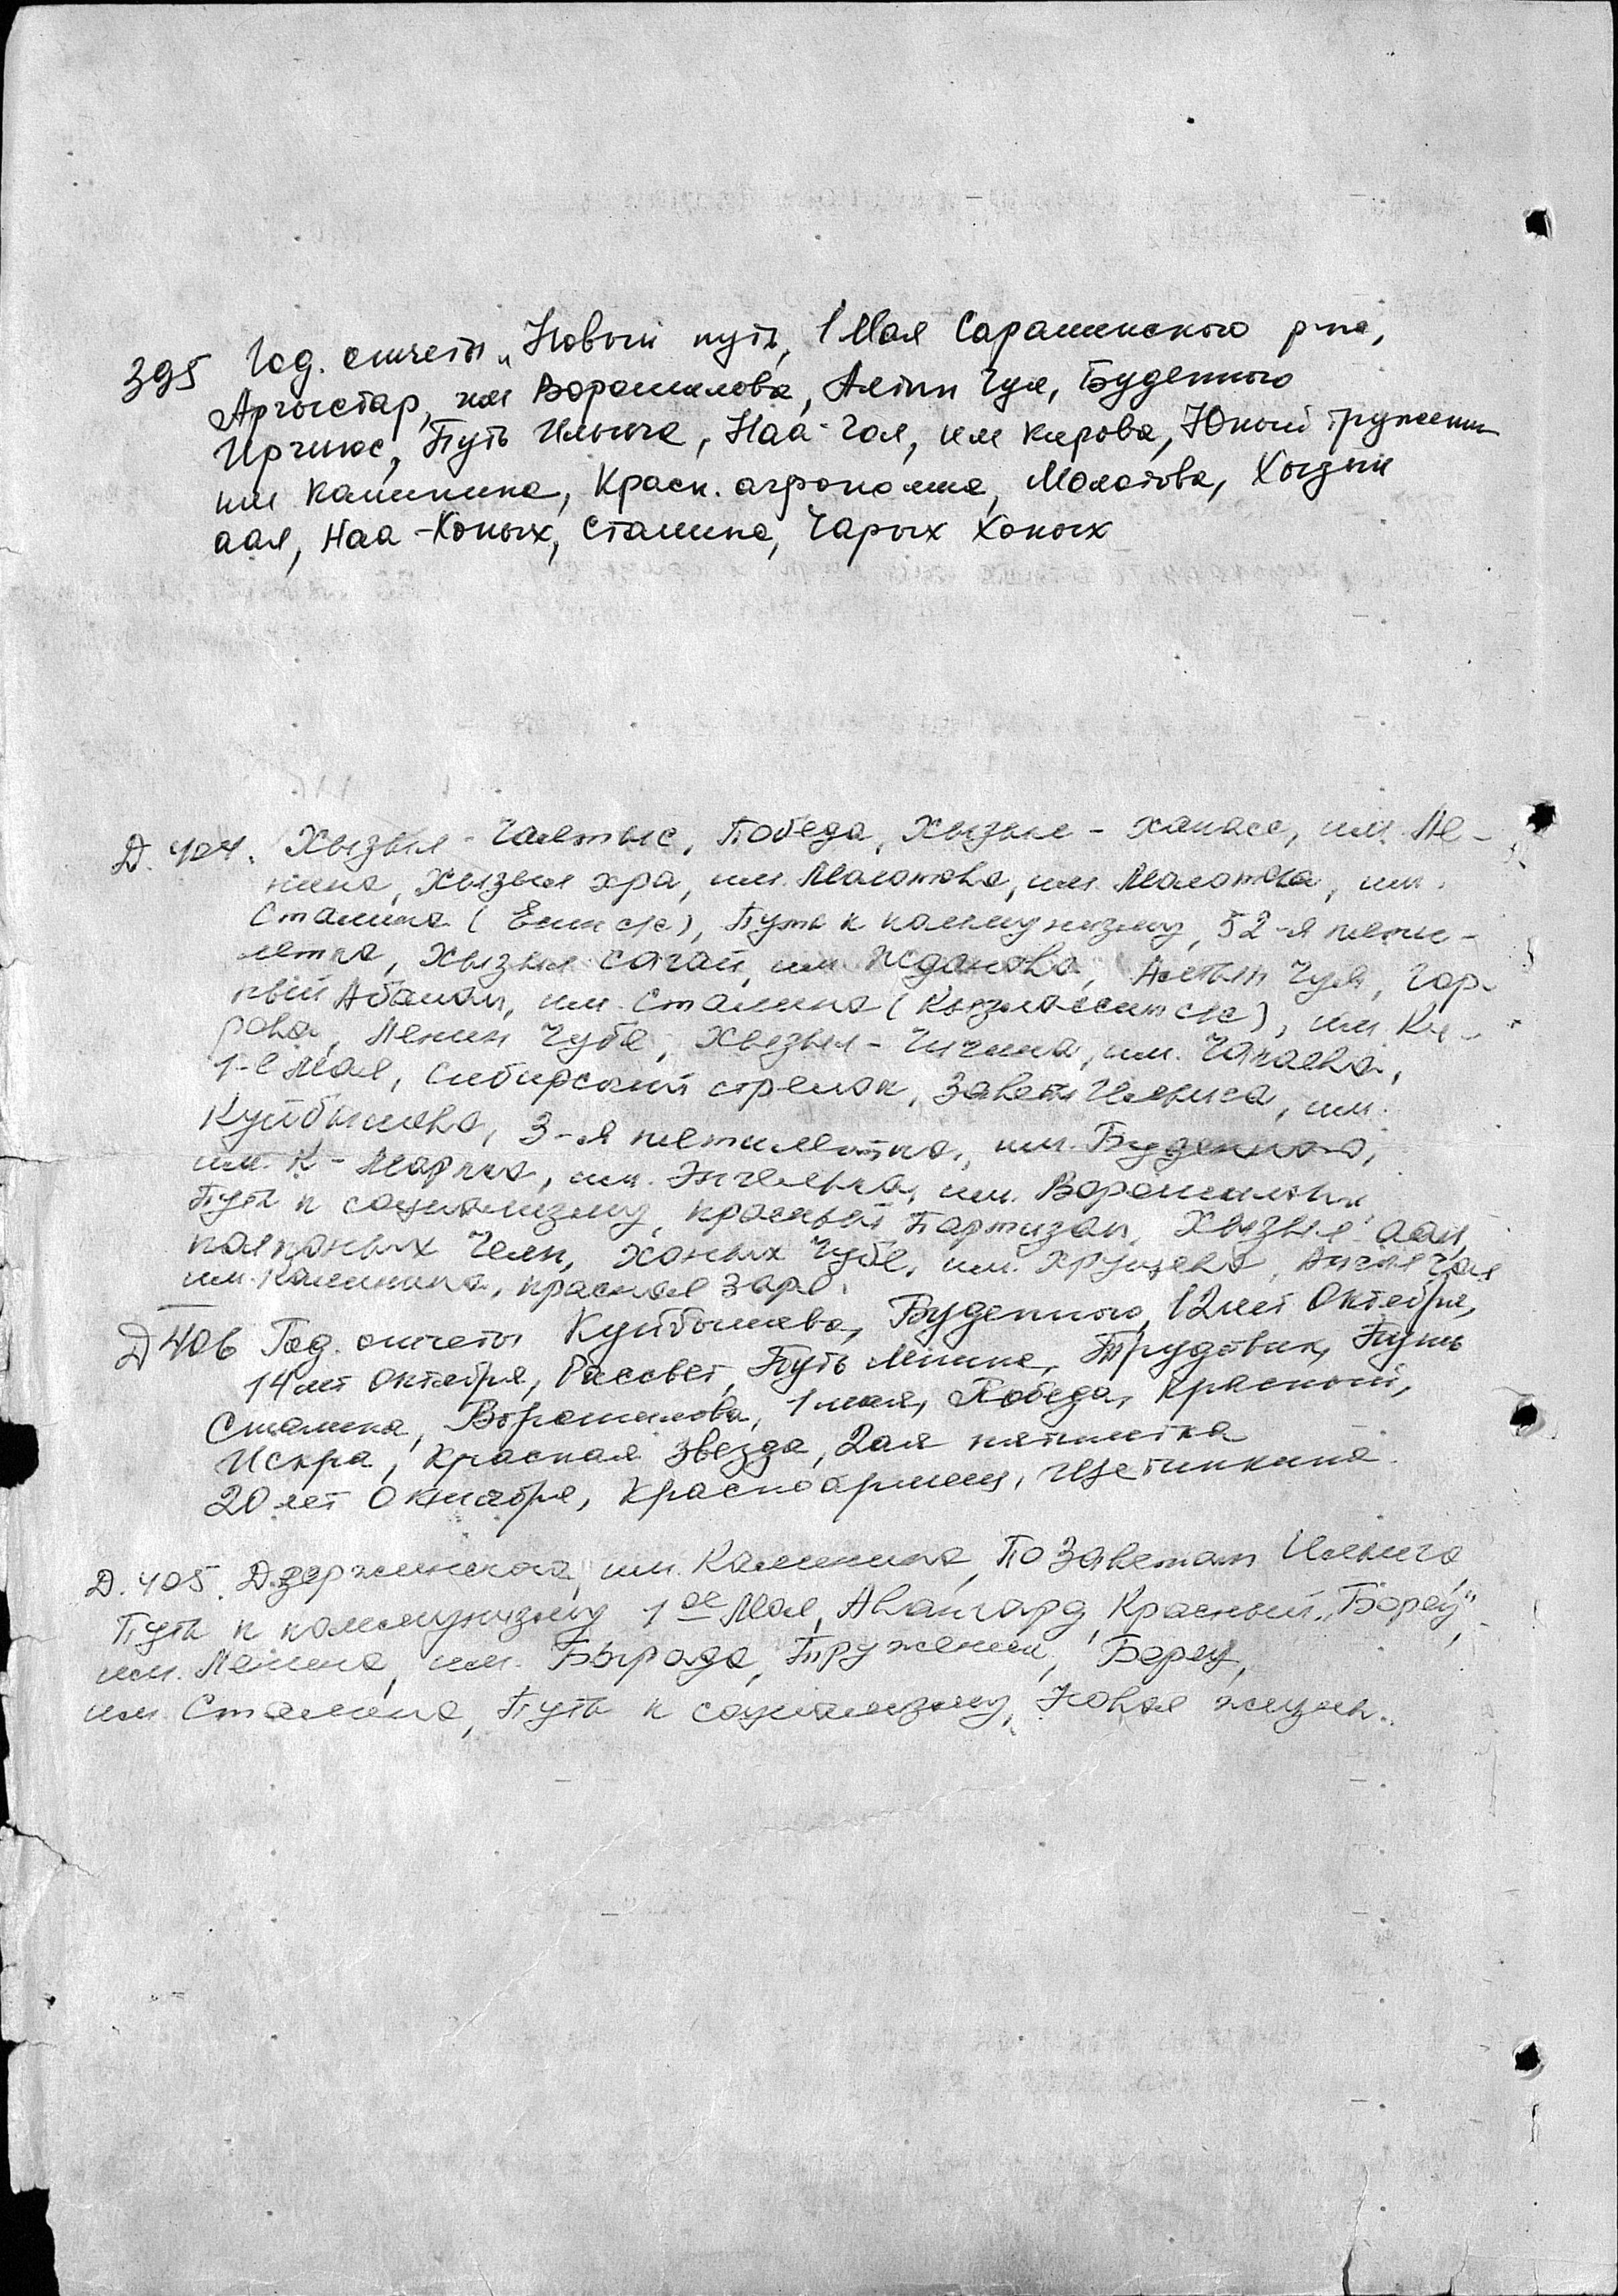 395 Год. отчеты „Новый путь, 1 Мая Сарашенского р-на,
Аргыстар, им Ворошилова, Алтын Чул, Буденного
Путь Ильича, Наа-Чол, им Кирова, Юный труженик
им Калинина, Красн. агрономка, Молотова, Хызыл
аал, Наа-Хоных, Сталина, Чарых Хоных
Д. 404. Хызыл-Чалтыс, Победа, Хызыл-хакасс, им. Ле-
нина, Хызыл хра, им. Молотова, им. Молотова, им.
Сталина (с/с), Путь к коммунизму, 52-я пяти-
летка, Хызыл сагай, им Жданова, Алтын Чул, Гор-
ный Абакан, им. Сталина (Кызласский с/с), им. Ки-
рова, Ленин Чубе, Хызыл- им. Чапаева,
1-е Мая, Сибирский стрелок, Заветы Ильича, им.
Куйбышева, 3-я пятилетка, им. Буденного,
им. К-Маркса, им. Энгельса, им. Ворошилова,
Путь к социализму, красный Партизан, Хызыл аал,
Хоных Чубе, им. Хрущева,
им. Калинина, красная заря.
Д 406 Год. отчеты Куйбышева, Буденного, 12 лет Октября,
14 лет Октября, Рассвет, Путь Ленина, Трудовик, Путь
Сталина, Ворошилова, 1 мая, Победа, Красный,
Искра, Красная Звезда, 2ая пятилетка
20 лет Октября, Красноармеец, Щетинкина.
Д. 405. Дзержинского, им. Калинина, По Заветам Ильича,
Путь к коммунизму 1ое Мая, Авангард, Красный „Борец",
им. Ленина, им. Труженик, Борец,
им. Сталина, Путь к социализму, Новая жизнь.